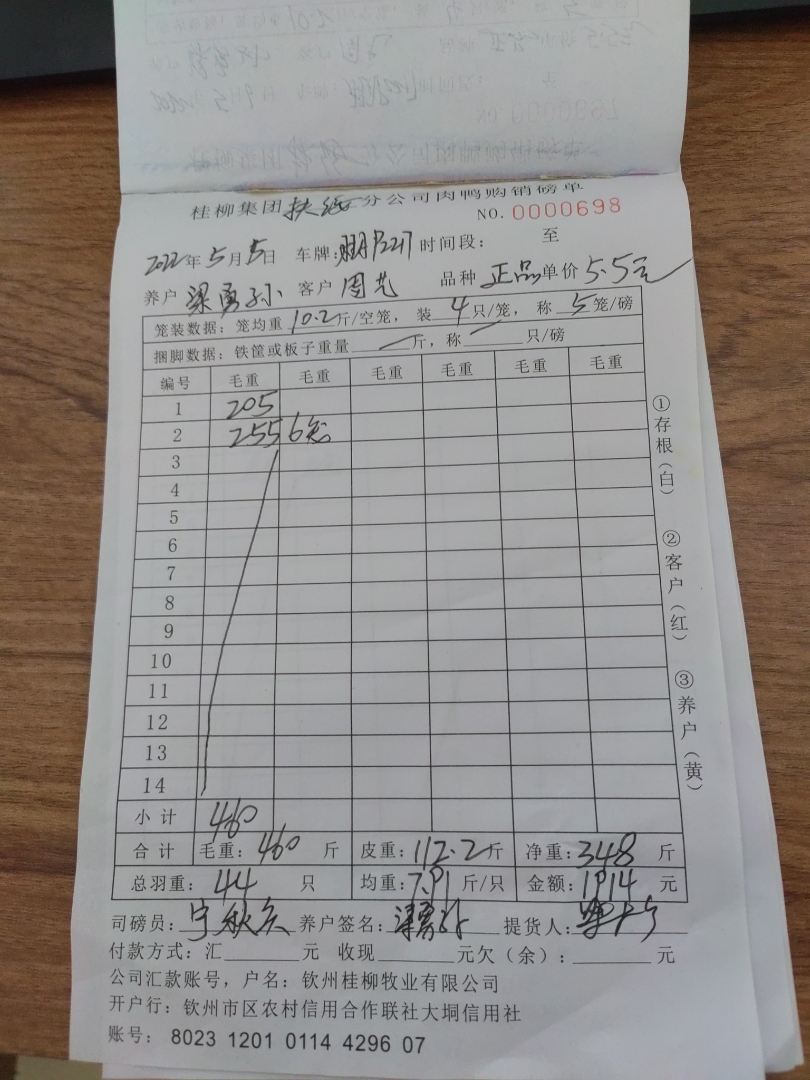 桂柳集团 分公司肉鸭购销磅单
NO. 0000698
2022年5月5日 车牌: 时间段: 至
养户 梁勇孙 客户 周 品种 正品 单价 5.5元
笼装数据: 笼均重 10.2 斤/空笼, 装 4 只/笼, 称 5 笼/磅
捆脚数据: 铁筐或板子重量 斤, 称 只/磅
编号 毛重 毛重 毛重 毛重 毛重 毛重
1 205
2 255 6笼
3
4
5
6
7
8
9
10
11
12
13
14
小计 460
合计 毛重: 460 斤 皮重: 112.2 斤 净重: 348 斤
总羽重: 44 只 均重: 7.91 斤/只 金额: 1914 元
司磅员: 宁秋 养户签名: 梁勇孙 提货人:
付款方式: 汇 元 收现 元欠(余): 元
公司汇款账号, 户名: 钦州桂柳牧业有限公司
开户行: 钦州市区农村信用合作联社大垌信用社
账号: 8023 1201 0114 4296 07
①存根(白)
②客户(红)
③养户(黄)